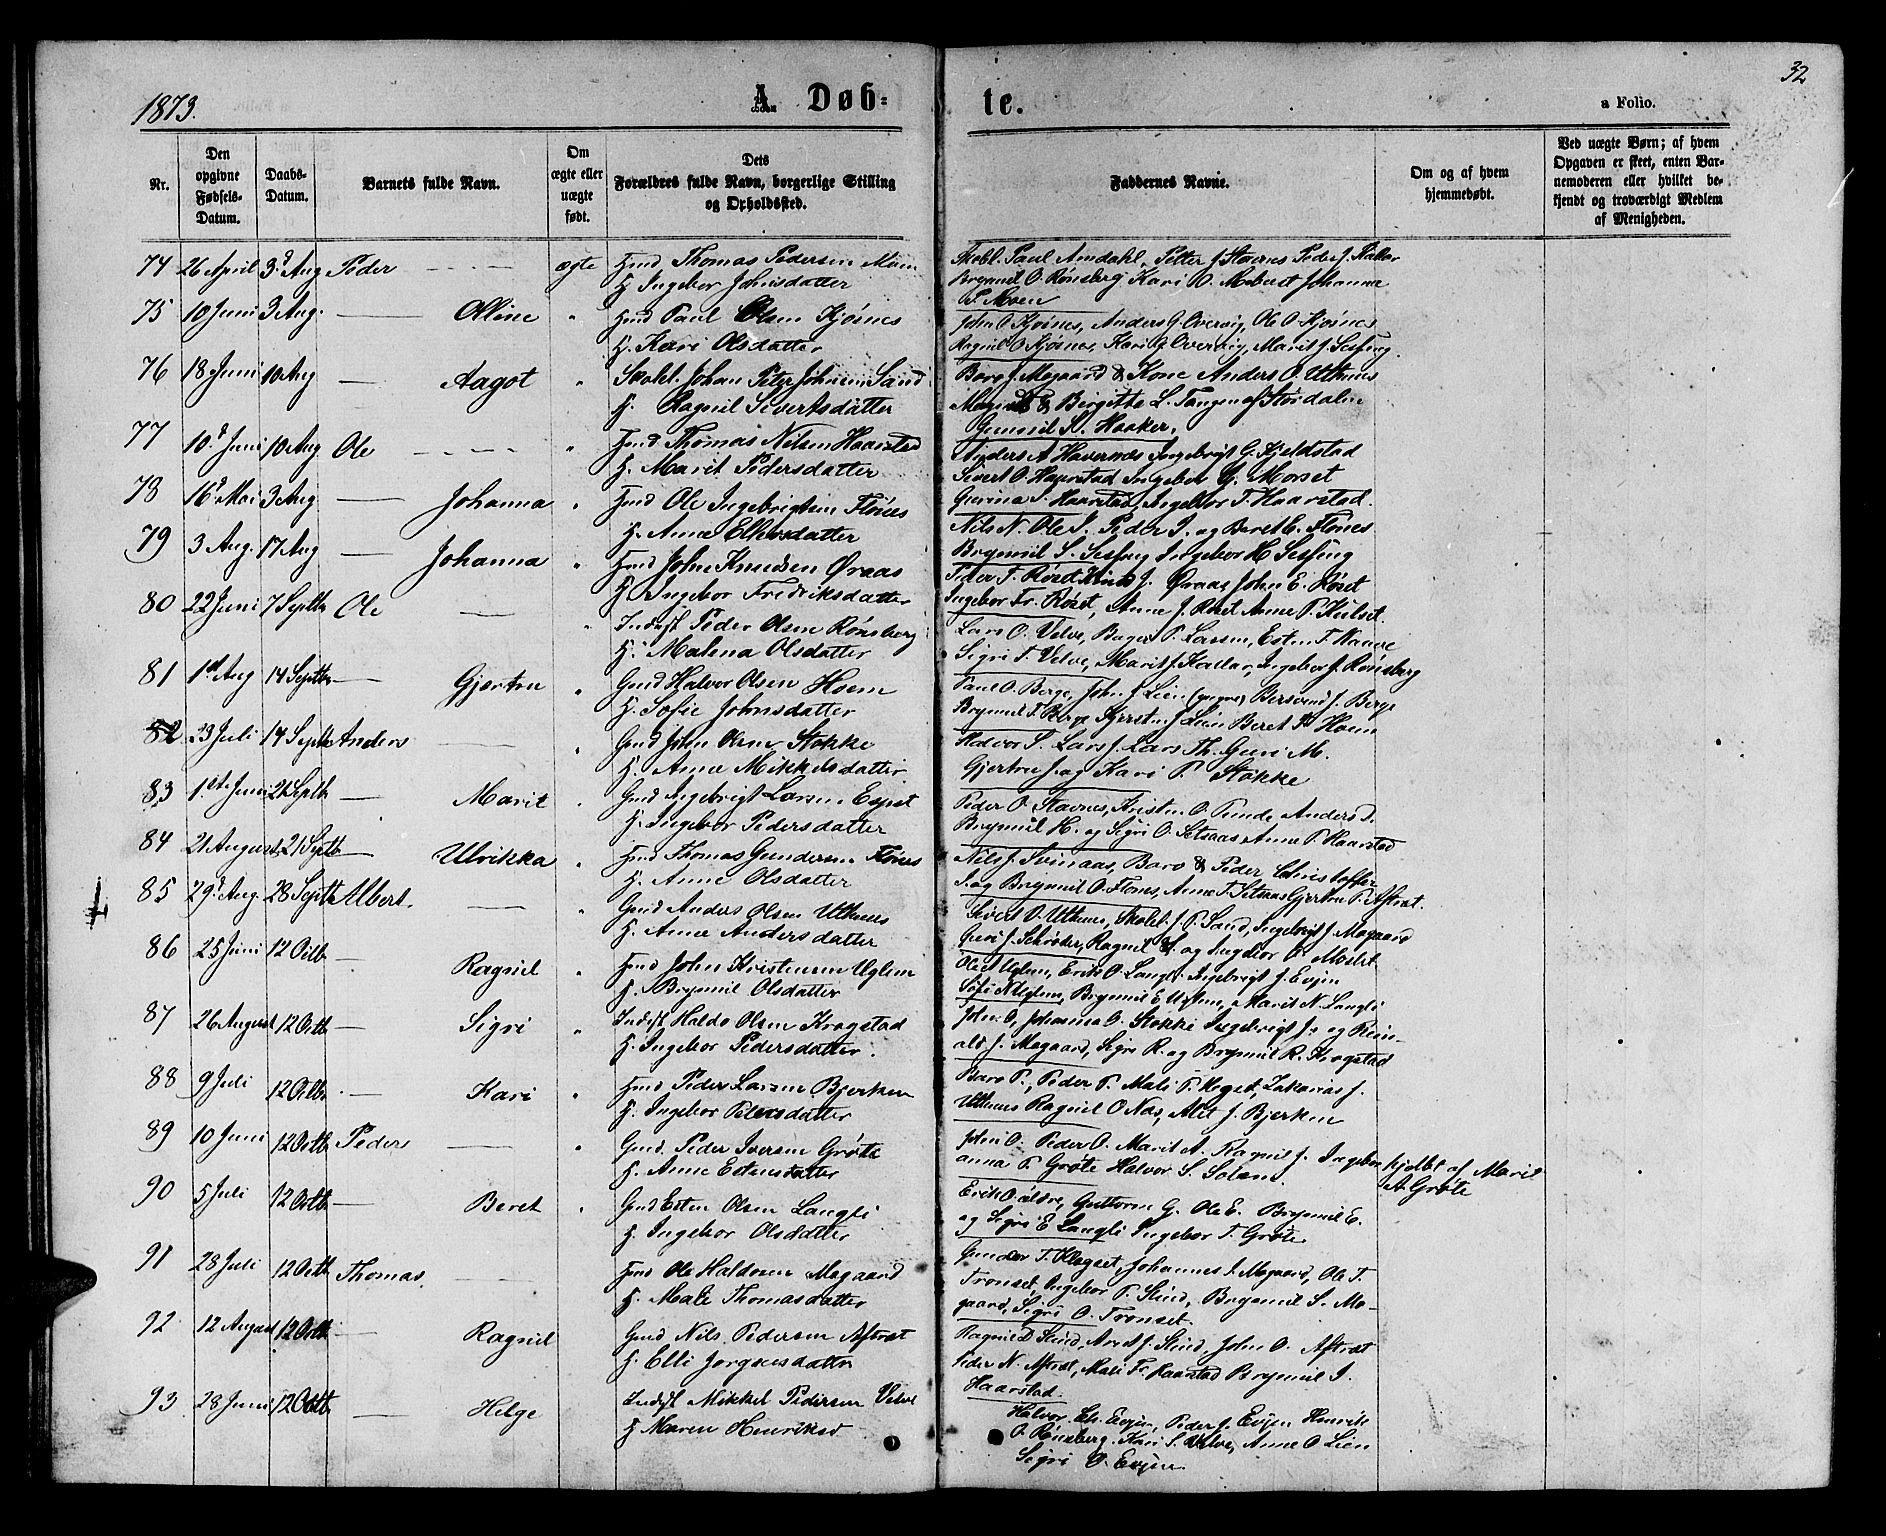 1873.
A. Døb-
te.
a Folio.
32
Nr.
Den opgivne Fødsels-Datum.
Daabs-Datum.
Barnets fulde Navn.
Om ægte eller uægte født.
Dets Forældres fulde Navn, borgerlige Stilling og Opholdssted.
Faddernes Navne.
Om og af hvem hjemmedøbt.
Ved uægte Børn; af hvem Opgaven er skeet, enten Barnemoderen eller hvilket bekjendt og troværdigt Medlem af Menigheden.
74 26 April 3d Aug Peder ægte Hmd Thomas Pedersen
H. Ingebor Johnsdatter
Skobl. Paul Amdahl, Petter J. Stavnes Peder J. Kallar
Brynnil O. Rønsberg Kari O. Johanna
P. Moen
75 10 Juni 3 Aug. Olline " Hmd Paul Olsen Kjøsnes
H. Kari Olsdatter
John O Kjøsnes, Anders G. Overvig, Ole O. Kjøsnes
Ragnil O. Kjøsnes, Kari G. Overvig, Marit J. Sesseng.
76 18 Juni 10 Aug Aagot " Skolel. Johan Peter Johnsen Sand
H. Ragnil Sivertsdatter
Baro J. Mogaard & Kone Anders O. Uthuus
& Birgitte L. Tangen af Størdalen
Gunnil S. Haaker.
77 10d Juni 10 Aug Ole " Hmd Thomas Nilsen Haarstad
H. Marit Pedersdatter
Anders A Havernæs Ingebrigt G. Kjeldstad
Sivert O. Haarstad Ingebor G. Morset
Gurina T. Haarstad, Ingebor T. Haarstad.
78 16d Mai 3 Aug Johanna " Hmd Ole Ingebrigtsen Flønes
H. Anne Ellevsdatter
Nils N. Ole I. Peder I. og Beret E. Flønes.
Brynnil S. Sesseng Ingebor H. Sesseng
79 3 Aug. 17 Aug Johanna " Hmd John Knudsen Øraas
H. Ingebor Fredriksdatter
Peder F. Røset, Knud J. Øraas John E. Røset
Ingebor Fr. Røset, Anne J. Røset Anne P. Kulset.
80 22 Juni 7 Septbr Ole " Indsf. Peder Olsen Rønsberg
H. Malena Olsdatter
Lars O. Velve, P. Larsen, Esten T.
Sigri T. Velve, Marit J. Kallar, Ingebor J. Rønsberg
81 1st Aug 14 Septbr Gjertru " Gmd Halvor Olsen Hoem
H. Sofie Johnsdatter
Paul O. Berge, John J. Lien (yngre) Bersvend J. Berge
Brynnil T. Berge Gjertru J. Lien Beret P. Hoem
82 23 Juli 14 Septbr Anders " Gmd John Olsen Stokke
H. Anne Mikkelsdatter.
Halvor S. Lars J. Lars Th. Guri M.
Gjertru J. og Kari P. Stokke
83 1st Juni 21 Septbr Marit " Gmd Ingebrigt Larsen Espet
H. Ingebor Pedersdatter
Peder O. Stavnes, Kristen O. Anders D.
Brynnil H. og Sigri O. Setsaas Anne P. Haarstad
84 21 August 21 Septb. Ulrikka " Hmd Thomas Gundersen Flønes
H. Anne Olsdatter
Nils J. Svinaas, Baro & Peder Christoffer
I. og Brynnil O. Flones, Anne T. Setsaas Gjertru P. Aftret.
85 29d Aug. 28 Septbr Albert. " Gmd Anders Olsen Uthuus
H. Anne Andersdatter
Sivert O. Uthuus, Skolel. J. P. Sand, Ingebrigt J. Mogaard
Guri J. Schrøder, Ragnil S. og Ingebor O. Moslet
86 25 Juni 12 Octb. Ragnil " Hmd John Kristensen Uglem
H. Brynnil Olsdatter
Ole Uglem, Erik O. Langli Ingebrigt J. Evjen
Sofie N. Uglem, Brynnil E. Uglem, Marit N. Langli
87 26 August 12 Octb. Sigri " Indsf. Haldo Olsen Kragstad
H. Ingebor Pedersdatter.
John O. Johanna O. Stokke Ingebrigt J. og Rein-
ald J. Mogaard, Sigri R. og Brynnil R. Kragstad
88 9 Juli 12 Octb. Kari " Hmd Peder Larsen Bjerken
H. Ingebor Pedersdatter
Baro P., Peder P. Mali P. Kløgset, Zakarias J.
Uthuus Ragnil O Næs, Alet J. Bjerken
89 10 Juni 12 Octb. Peder " Gmd. Peder Iversen Grøte
H. Anne Estensdatter
John O. Peder O. Marit A. Ragnil J. Ingebor
anna P. Grøte Halvor S. Solem
hjdbt af Marit
A. Grøte
90 5 Juli 12 Octb. Beret " Gmd Esten Olsen Langli
H. Ingebor Olsdatter
Erik O. ældre, Guttorm G. Ole E. Brynnil E.
og Sigri E Langli Ingebor T. Grøte.
91 28 Juli 12 Octb Thomas. Hmd Ole Haldosen Mogaard
H. Mali Thomasdatter
Gunder T. Kløgset, Johannes I. Mogaard, Ole T.
Tronset, Ingebor P. Stind, Brynnil S. Mo-
gaard, Sigri O. Tronset.
92 12 August 12 Octb. Ragnil Gmd Nils Pedersen Aftret
H. Elli Jørgensdatter
Ragnil D. Stind, Aret J. Stind, John O. Aftret
Peder N. Aftret, Mali Fr. Haarstad Brynnil I.
Haarstad.
93 28 Juni 12 Octb. Helge Indsf. Mikkel Pedersen Velve
H Maren Henriksd
Halvor Ch. Evjen, Peder J. Evjen Henrik
O. Rønsberg. Kari S. Velve, Anne O. Lien
Sigri O. Evjen.